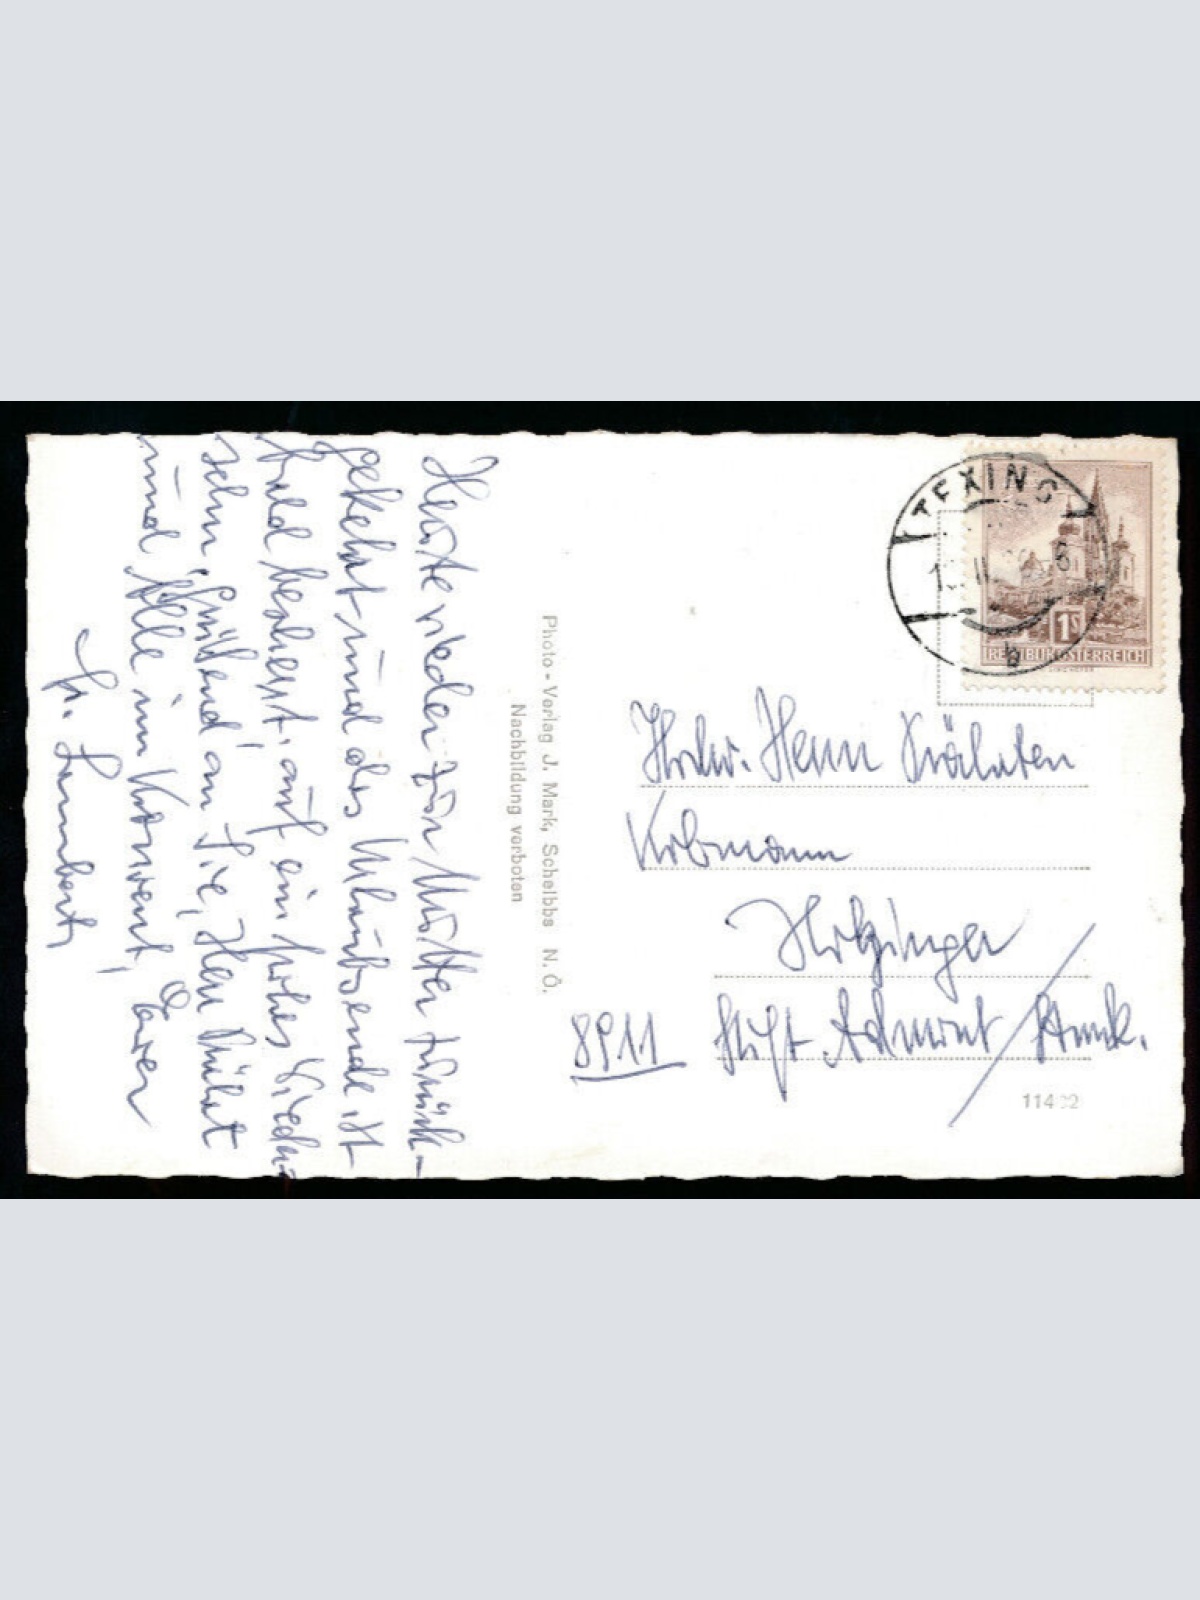 Heute wieder zur Mutter zurück-
gekehrt und das Urlaubsende ist
bald besiegt, auf ein frohes Wieder-
sehn, Grüßend an Sie, Herr Prälat
und Alle im Konvent, Euer
fr. Lambert
Photo - Verlag J. Mark, Scheibbs N. Ö.
Nachbildung verboten
TEXING
b
1S
REPUBLIK ÖSTERREICH
Hochw. Herrn Prälaten
Koloman
Holzinger
8911 Stift Admont / Stmk.